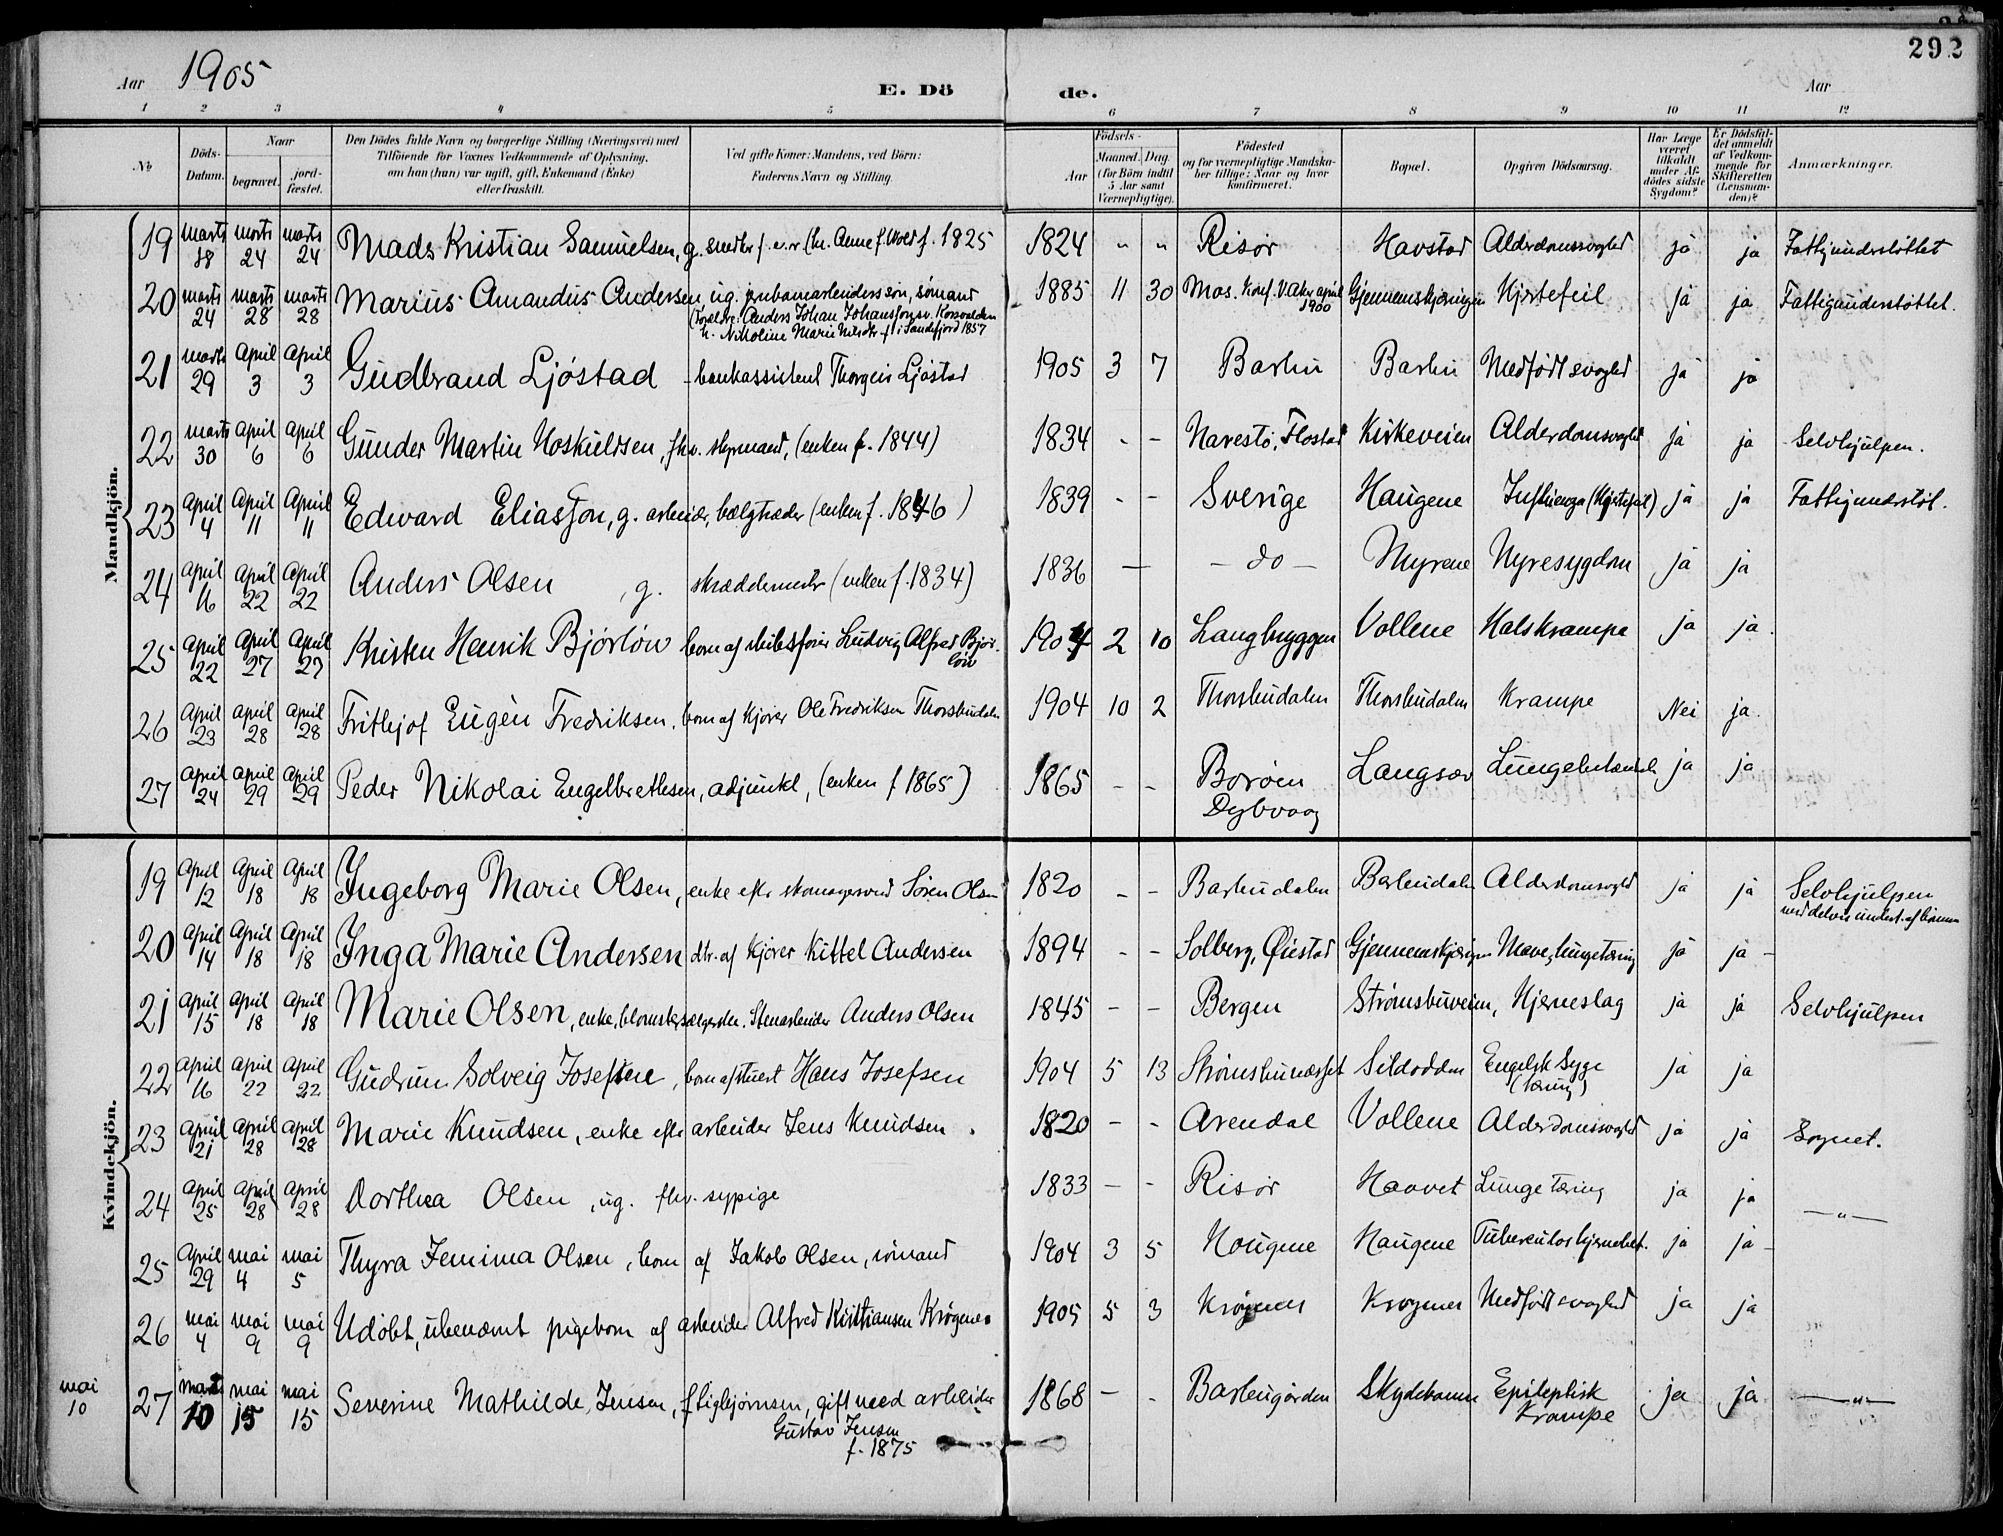 292
Aar 1905
E. Dö de.
Aar
1 2 3 4 5 6 7 8 9 10 11 12
№
Döds-Datum.
Naar
begravet.
jord-fæstet.
Den Dödes fulde Navn og borgerlige Stilling (Næringsvei) med
Tilföiende for Voxnes Vedkommende af Oplysning,
om han (hun) var ugift, gift, Enkemand (Enke)
eller fraskilt.
Ved gifte Koner: Mandens, ved Börn:
Faderens Navn og Stilling.
Födsels-
Aar
Maaned. Dag.
(for Börn indtil
5 Aar samt
Værnepligtige).
Födested
og for værnepligtige Mandska-
ber tillige: Naar og hvor
konfirmeret.
Bopæl.
Opgiven Dödsaarsag.
Har Læge
været
tilkaldt
under Af-
dödes sidste
Sygdom?
Er Dödsfal-
det anmeldt
af Vedkom-
mende for
Skifteretten
(Lensman-
den)?
Anmærkninger.
Mandkjön.
19 marts 18 marts 24 marts 24 Mads Kristian Samuelsen, g. 1825 1824 " " Risør Havstad Alderdomssvaghed ja ja Fattigunderstøttet
20 marts 24 marts 28 marts 28 Marius Amandus Andersen, ug. jernbanearbeiders søn, sømand
(Foreldre: Anders Johan Johansson
h. Nikoline Marie i Sandefjord 1857
1885 11 30 Mos. Konf. april 1900 Gjennemskjæringen Hjertefeil ja ja Fattigunderstøttet.
21 marts 29 April 3 April 3 Gudbrand Ljøstad - bankassistent Thorgeir Ljøstad 1905 3 7 Barbu Barbu Medfødt svaghed ja ja
22 marts 30 April 6 April 6 Gunder Martin Hoskuldsen, fhv. styrmand, (enken f. 1844) 1834 - - Narestø, Flostad Kirkeveien Alderdomsvaghed ja ja Selvhjulpen.
23 April 4 April 11 April 11 Edward Eliasson, g. arbeider, bælgtræder (enken f. 1846) 1839 - - Sverige Haugene Influenza (Hjertefeil) ja ja Fattigunderstøt.
24 April 16 April 22 April 22 Anders Olsen, g. skræddermester (enken f. 1834) 1836 — - do - Myrene Nyresygdom ja ja
25 April 22 April 27 April 27 Kristen Henrik Bjørløw barn af skibsfører Ludvig Alfred Bjør-
løw
1904 2 10 Langbryggen Vollene Halskrampe ja ja.
26 April 23 April 28 April 28 Frithjof Eugèn Fredriksen. barn af kjører Ole Fredriksen Thorsbudalen 1904 10 2 Thorsbudalen Thorsbudalen Krampe Nei ja.
27 April 24 April 29 April 29 Peder Nikolai Engelbrethsen, adjunkt, (enken f 1865) 1865 - - Borøen
Dybvaag
Langsæv ja ja
Kvindekjön.
19 April 12 April 18 April 18 Ingeborg Marie Olsen, enke efter skomagersvend Søren Olsen 1820 - - Barbudalen Barbudalen Alderdomsvaghed ja ja Selvhjulpen
med delvis underst. af
20 April 14 April 18 April 18 Inga Marie Andersen dtr. af kjører Kittel Andersen 1894 - - Solberg, Øiestad Gjennemskjæringen Mave, lungetæring ja ja -
21 April 15 April 18 April 18 Marie Olsen, enke, blomstersælgerske. Stenarbeider Anders Olsen 1845 - - Bergen Strømsbuveien, Hjerneslag ja ja Selvhjulpen
22 April 16 April 22 April 22 Gudrun Solveig Josefine, barn af stuert Hans Josefsen 1904 5 13 Strømsbunæsset Sildodden Engelsk syge
(tæring)
ja ja
23 April 21 April 28 April 28 Marie Knudsen, enke efter arbeider Jens Knudsen. 1820 - - Arendal Vollene Alderdomssvaghed ja ja Sognet.
24 April 25 April 28 April 28 Dorthea Olsen, ug. fhv. sypige 1833 - - Risør Haavet Lunge tæring ja ja — " —
25 April 29 mai 4 mai 5 Thyra Jemima Olsen, barn af Jakob Olsen, sømand 1904 3 5 Haugene Haugene Tuberculos hjernebet. ja ja -
26 mai 4 mai 9 mai 9 Udøbt, ubenævnt pigebarn af arbeider Alfred Kristiansen Krøgenes 1905 5 3 Krøgenes Krøgenes Medfødt svaghed ja ja
mai 10
27 10 mai 15 mai 15 Severine Mathilde Jensen, f. Sigbjørnsen, gift med arbeider
Gustav Jensen
f. 1875
1868 - - Barbugården Skydebanen Epileptisk
Krampe
ja ja — " —